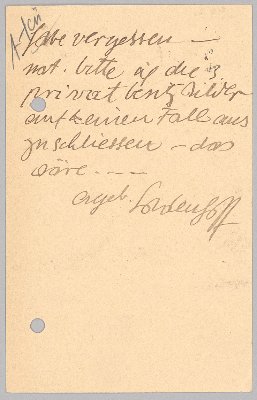 habe vergessen —
not. bitte die 3
privat besitz Bilder
auf keinen Fall aus
zuschliessen – das
wäre – – –
ergeb.